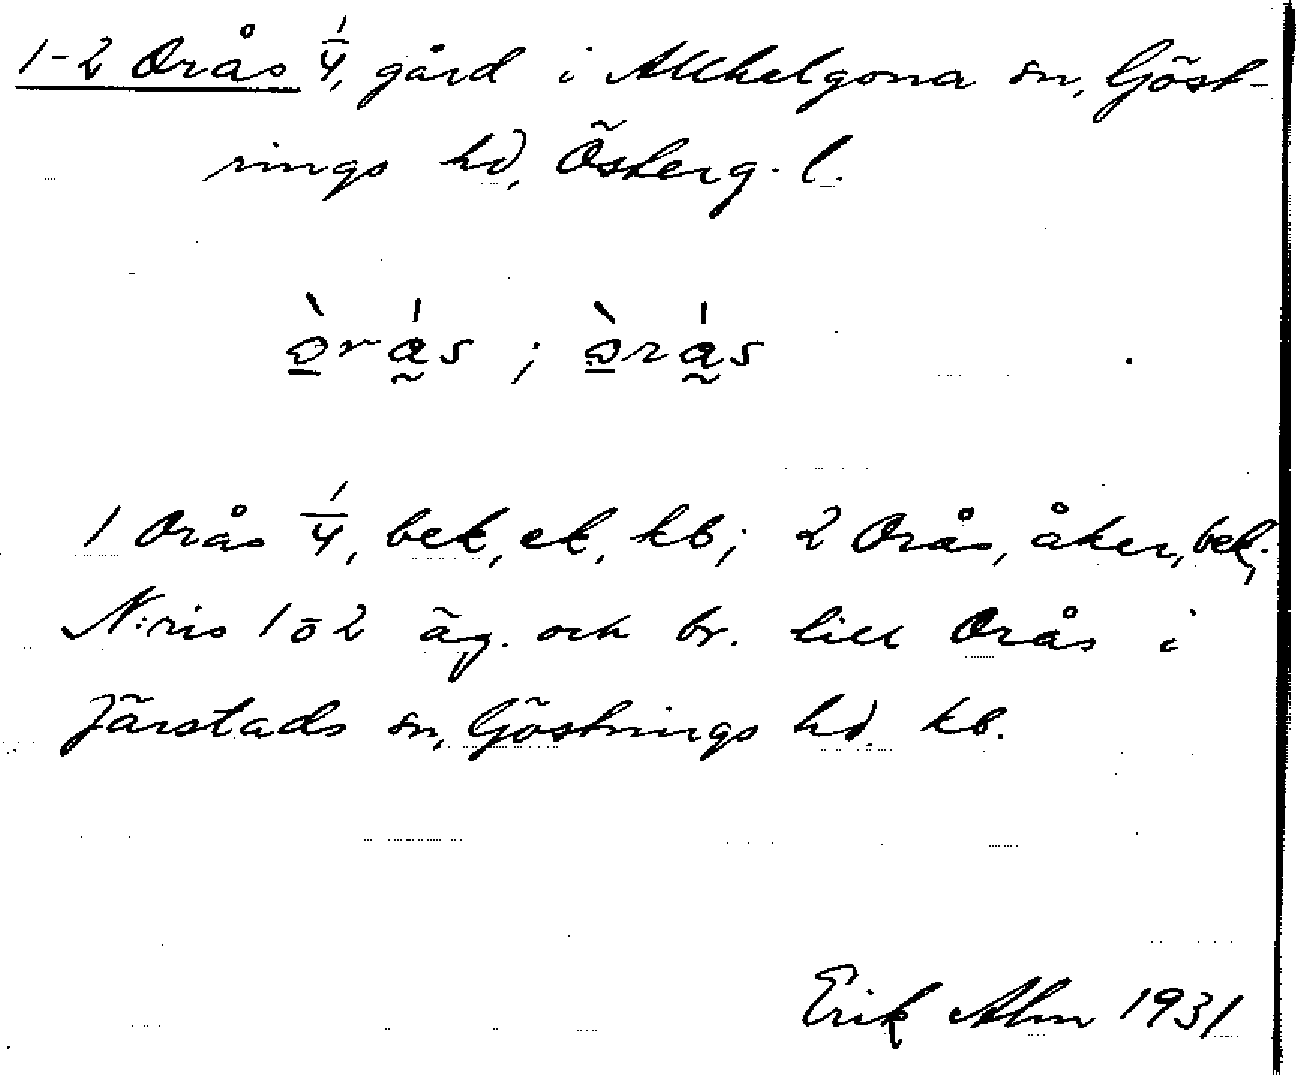 1-2 Orås 1/4, gård i Allhelgona sn, Göst-
rings hd, Österg. l.
1 Orås 1/4, bek, ek, kb; 2 Orås, åker, bek,
N:ris 1 o 2 äg. och br. till Orås i
Järstads sn, Göstrings hd. kb.
Erik Alm 1931